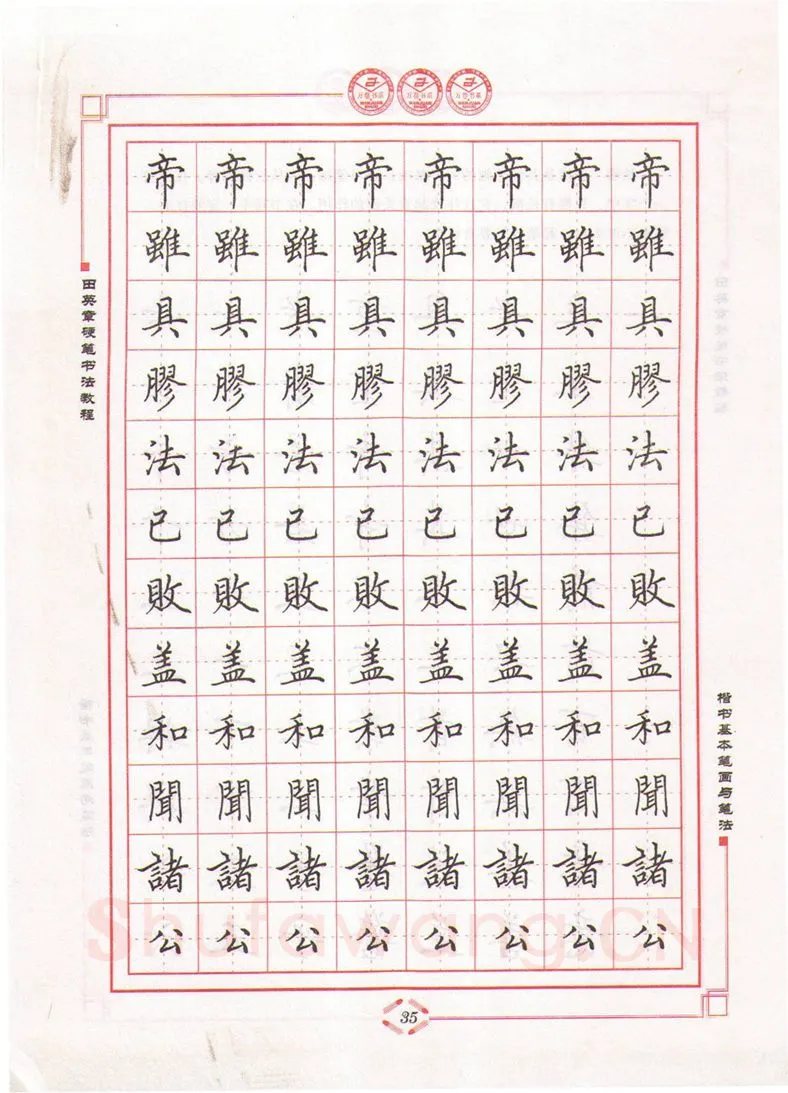 帝帝帝帝帝帝帝帝
雖雖雖雖雖雖雖雖
具具具具具具具具
膠膠膠膠膠膠膠膠
法法法法法法法法
已已已已已已已已
敗敗敗敗敗敗敗敗
盖盖盖盖盖盖盖盖
和和和和和和和和
聞聞聞聞聞聞聞聞
諸諸諸諸諸諸諸諸
公公公公公公公公
田英章硬笔书法教程
楷书基本笔画与笔法
Shufawang.CN
35